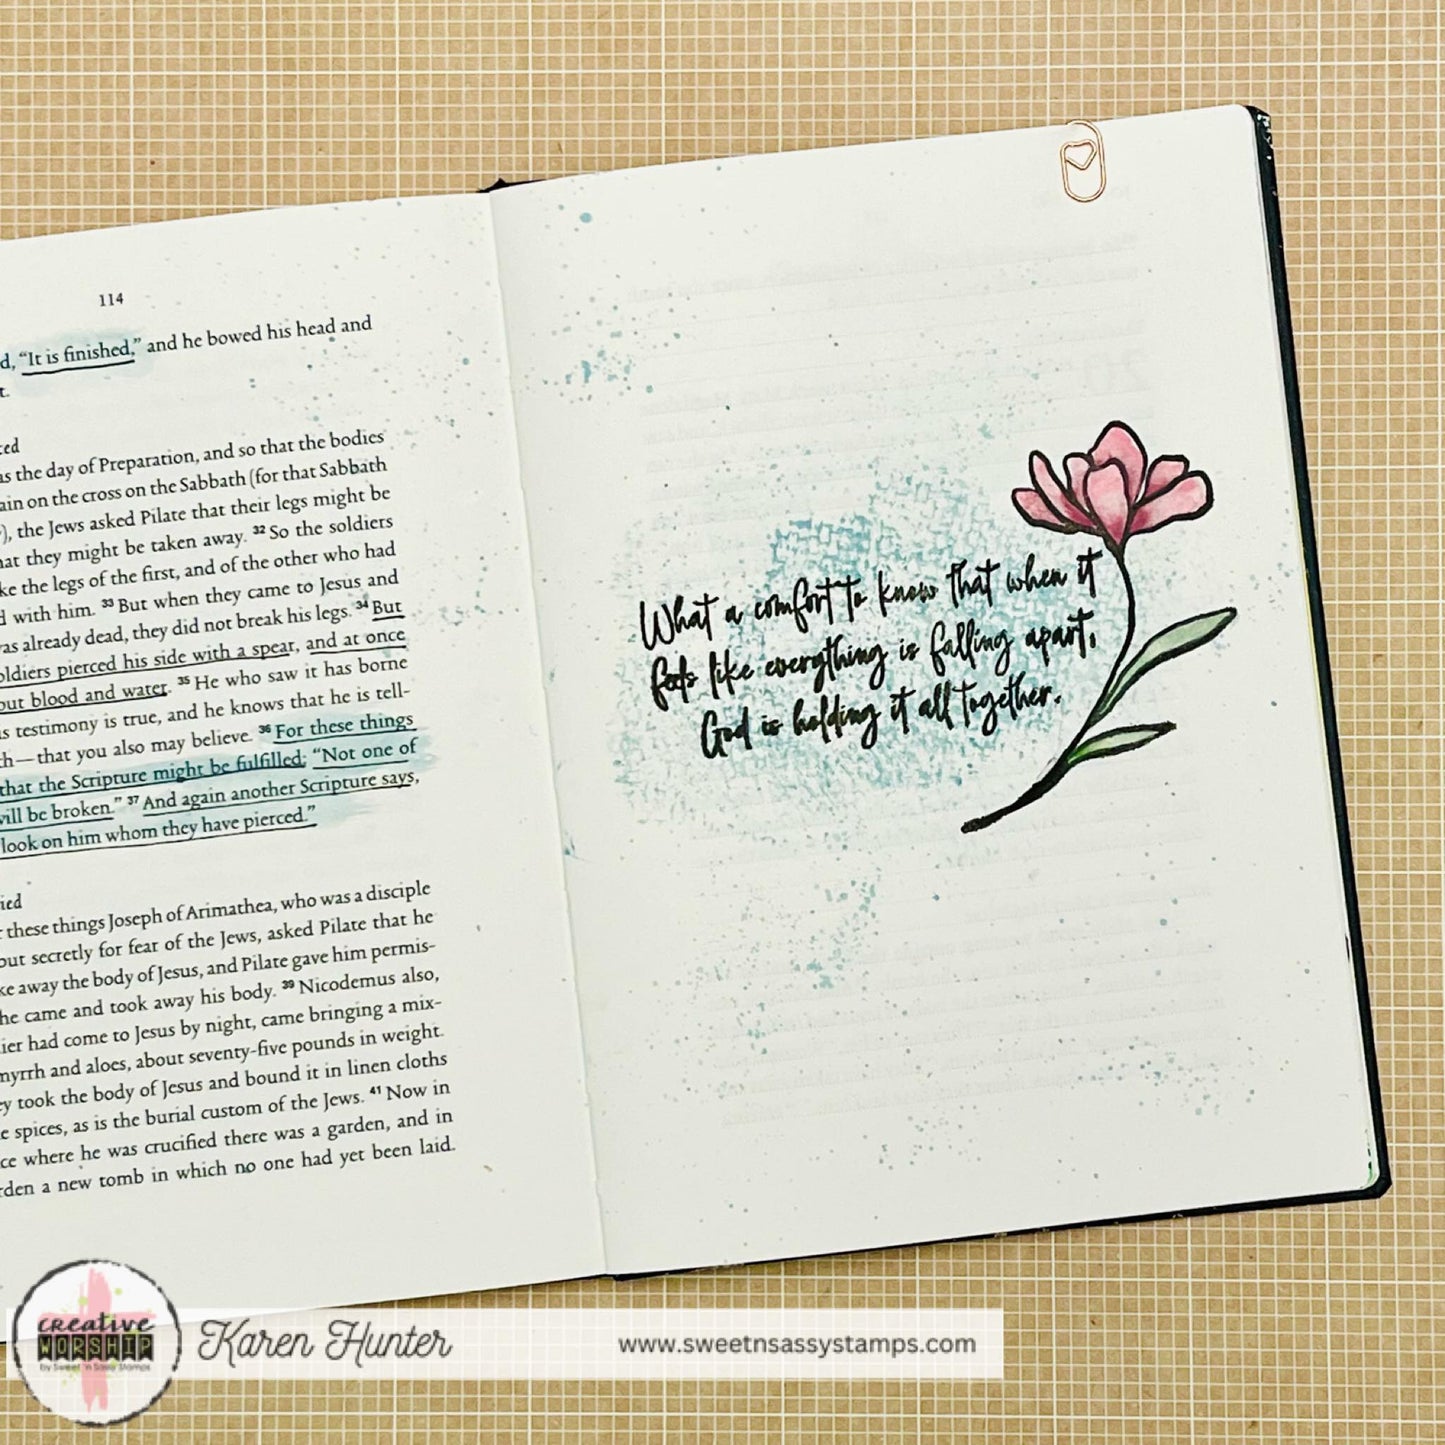 114
d, “It is finished,” and he bowed his head and
t.
as the day of Preparation, and so that the bodies
ain on the cross on the Sabbath (for that Sabbath
), the Jews asked Pilate that their legs might be
hat they might be taken away. 32 So the soldiers
ke the legs of the first, and of the other who had
d with him. 33 But when they came to Jesus and
was already dead, they did not break his legs. 34 But
oldiers pierced his side with a spear, and at once
out blood and water. 35 He who saw it has borne
s testimony is true, and he knows that he is tell-
th—that you also may believe. 36 For these things
that the Scripture might be fulfilled: “Not one of
will be broken.” 37 And again another Scripture says,
look on him whom they have pierced.”
ied
r these things Joseph of Arimathea, who was a disciple
but secretly for fear of the Jews, asked Pilate that he
ke away the body of Jesus, and Pilate gave him permis-
he came and took away his body. 39 Nicodemus also,
lier had come to Jesus by night, came bringing a mix-
myrrh and aloes, about seventy-five pounds in weight.
ey took the body of Jesus and bound it in linen cloths
e spices, as is the burial custom of the Jews. 41 Now in
ce where he was crucified there was a garden, and in
rden a new tomb in which no one had yet been laid.
What a comfort to know that when it
feels like everything is falling apart,
God is holding it all together.
creative
WORSHIP
by Sweet 'n Sassy Stamps
Karen Hunter
www.sweetnsassystamps.com